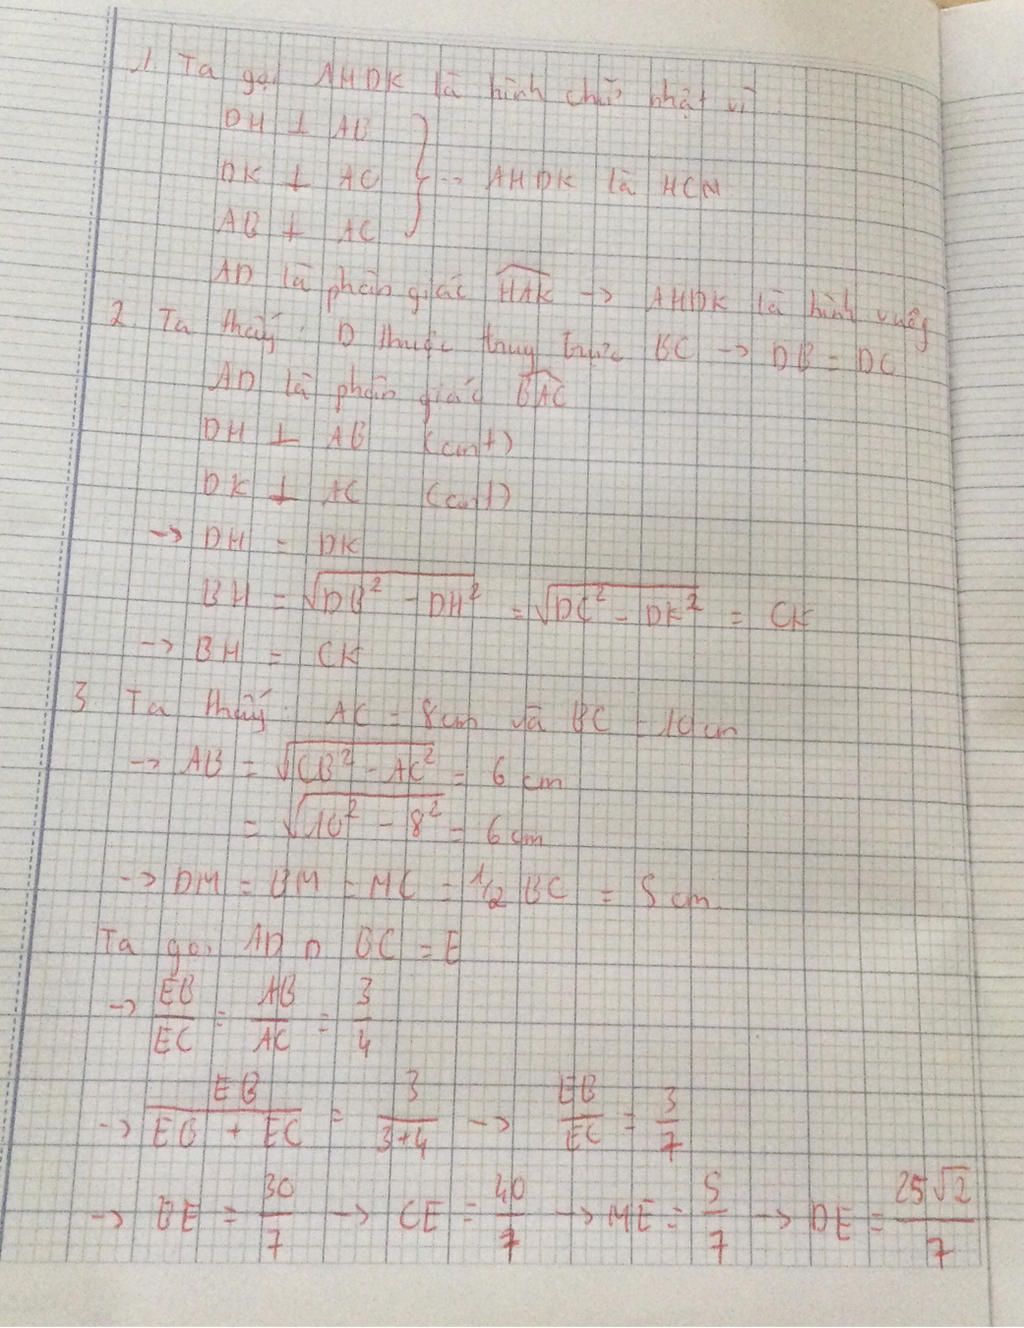 1. Ta gọi AHDK là hình chữ nhật vì
DH ⊥ AB
DK ⊥ AC } → AHDK là HCN
AB ⊥ AC
AD là phân giác HAK → AHDK là hình vuông
2. Ta thấy: D thuộc trung trực BC → DB = DC
AD là phân giác BAC
DH ⊥ AB (cmt)
DK ⊥ AC (cmt)
→ DH = DK
BH = √(DB² - DH²) = √(DC² - DK²) = CK
→ BH = CK
3 Ta thấy: AC = 8cm và BC = 10cm
→ AB = √(CB² - AC²) = 6 cm
= √(10² - 8²) = 6 cm
→ DM = BM = MC = 1/2 BC = 5 cm
Ta gọi AD ∩ BC = E
→ EB/EC = AB/AC = 3/4
→ EB/(EB + EC) = 3/(3+4) → EB/EC = 3/7
→ BE = 30/7 → CE = 40/7 → ME = 5/7 → DE = 25√2/7